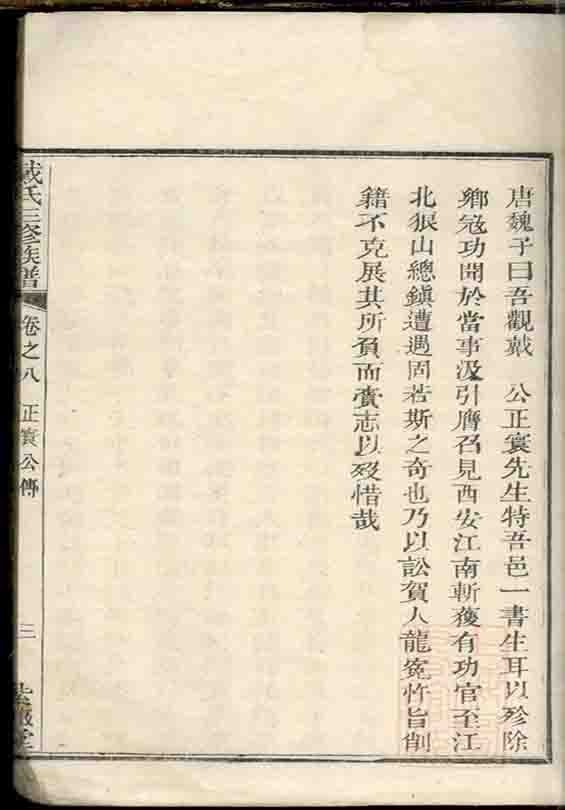 唐魏子曰吾觀戴　公正寰先生特吾邑一書生耳以殄除
鄉寇功聞於當事汲引膺召見西安江南斬獲有功官至江
北狼山總鎮遭遇固若斯之奇也乃以訟賀人龍寃忤旨削
籍不克展其所負而賫志以歿惜哉
戴氏三修族譜
卷之八　正寰公傳
三